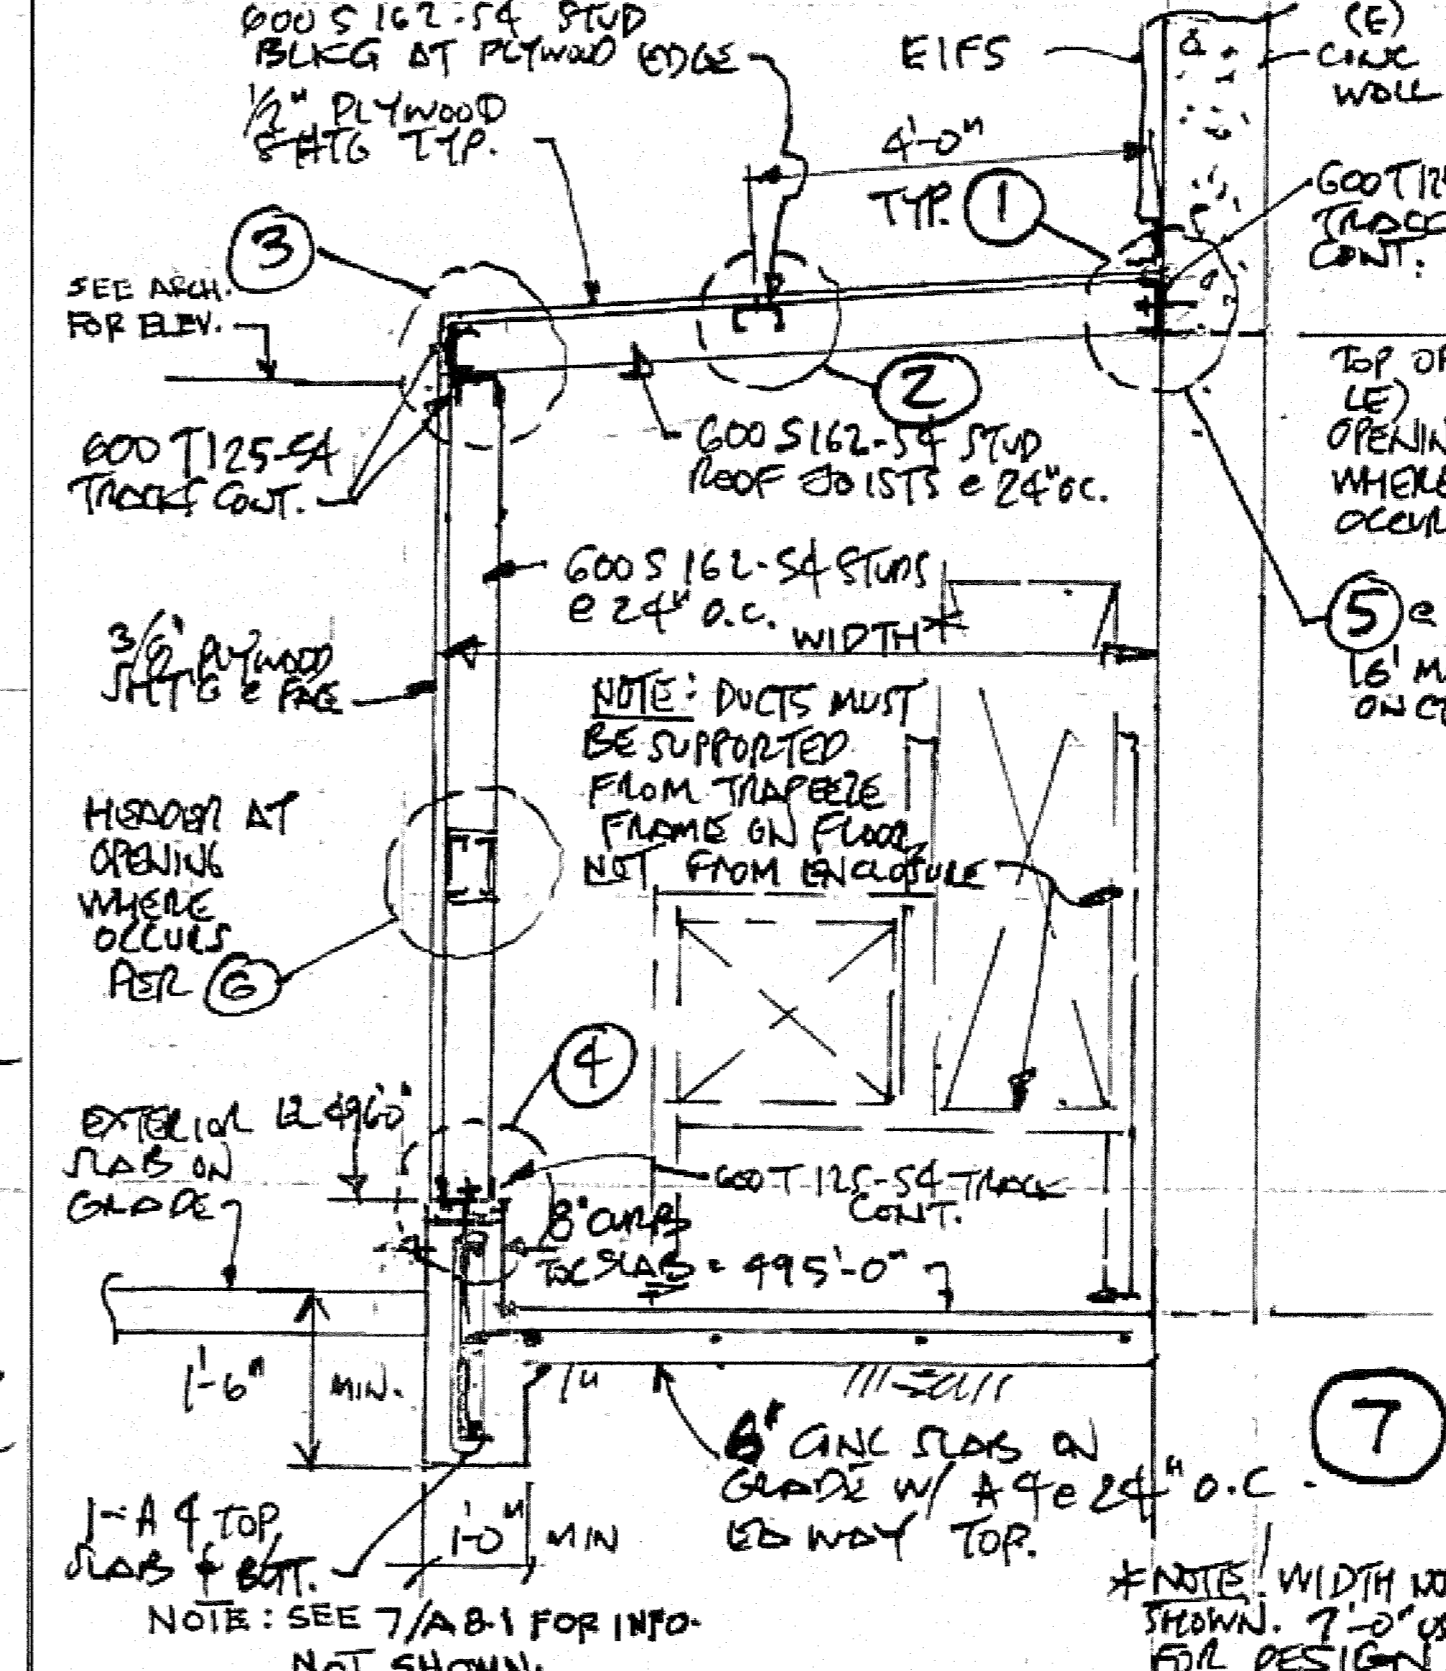 600 S 162-54 STUD
BLKG AT PLYWOOD EDGE
1/2" PLYWOOD
SHTG TYP.
EIFS
(E)
CONC
WALL
4'-0"
TYP.
1
600 T 125
TRACK
CONT.
3
SEE ARCH.
FOR ELEV.
2
600 T 125-54
TRACKS CONT.
600 S 162-54 STUD
ROOF JOISTS @ 24" OC.
TOP OF
(E)
OPENIN
WHERE
OCCUR
600 S 162-54 STUDS
@ 24" O.C.
WIDTH *
5 @
16' M
ON C
PLYWOOD
SHTG @ FACE
NOTE: DUCTS MUST
BE SUPPORTED
FROM TRAPEEZE
FRAME ON FLOOR,
NOT FROM ENCLOSURE
HEADER AT
OPENING
WHERE
OCCURS
PER 6
4
EXTERIOR
SLAB ON
GRADE
600 T 125-54 TRACK
CONT.
8" CURB
TOC SLAB = 495'-0"
1'-6" MIN.
7
CONC SLAB ON
GRADE W/ A 4 @ 24" O.C.
EA WAY TOP.
1-A 4 TOP
SLAB & BOTT.
1'-0" MIN
NOTE: SEE 7/A8.1 FOR INFO.
NOT SHOWN.
* NOTE! WIDTH NO
SHOWN. 7'-0" US
FOR DESIGN